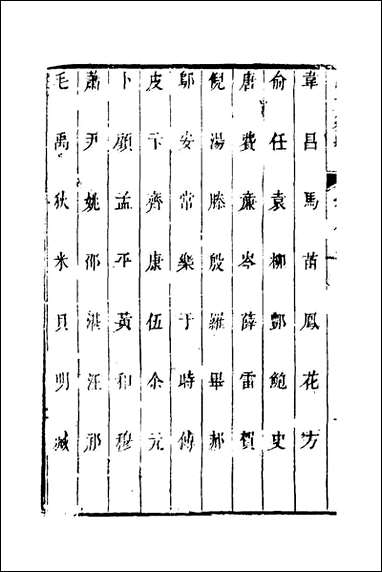 韋昌馬苗鳳花方
俞任袁柳酆鮑史
唐費廉岑薛雷賀
倪湯滕殷羅畢郝
鄔安常樂于時傅
皮卞齊康伍余元
卜顧孟平黃和穆
蕭尹姚邵湛汪祁
毛禹狄米貝明臧